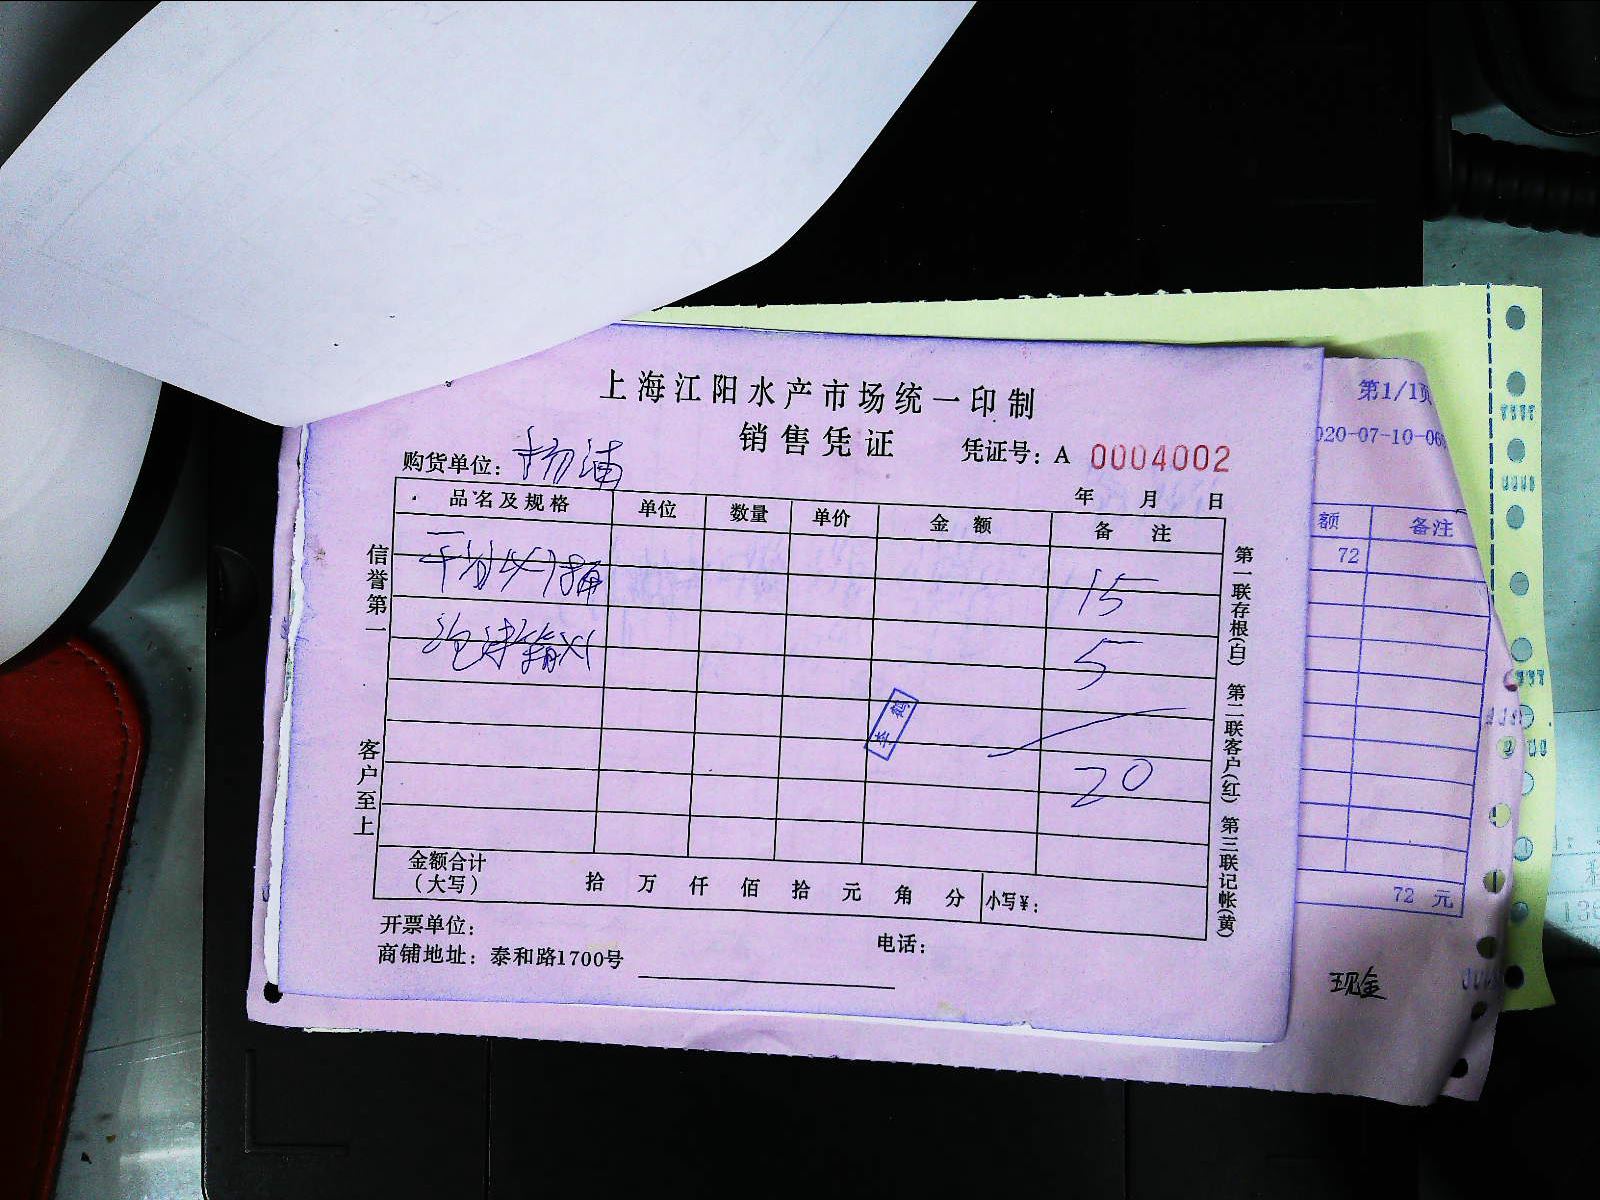 上海江阳水产市场统一印制
销售凭证
凭证号：A 0004002
购货单位：杨浦
年 月 日
品名及规格 单位 数量 单价 金额 备注
15
5
20
信誉第一
客户至上
第一联存根(白) 第二联客户(红) 第三联记帐(黄)
金额合计
（大写） 拾 万 仟 佰 拾 元 角 分 小写￥：
开票单位： 电话：
商铺地址：泰和路1700号
第1/1页
额 备注
72
72 元
现金